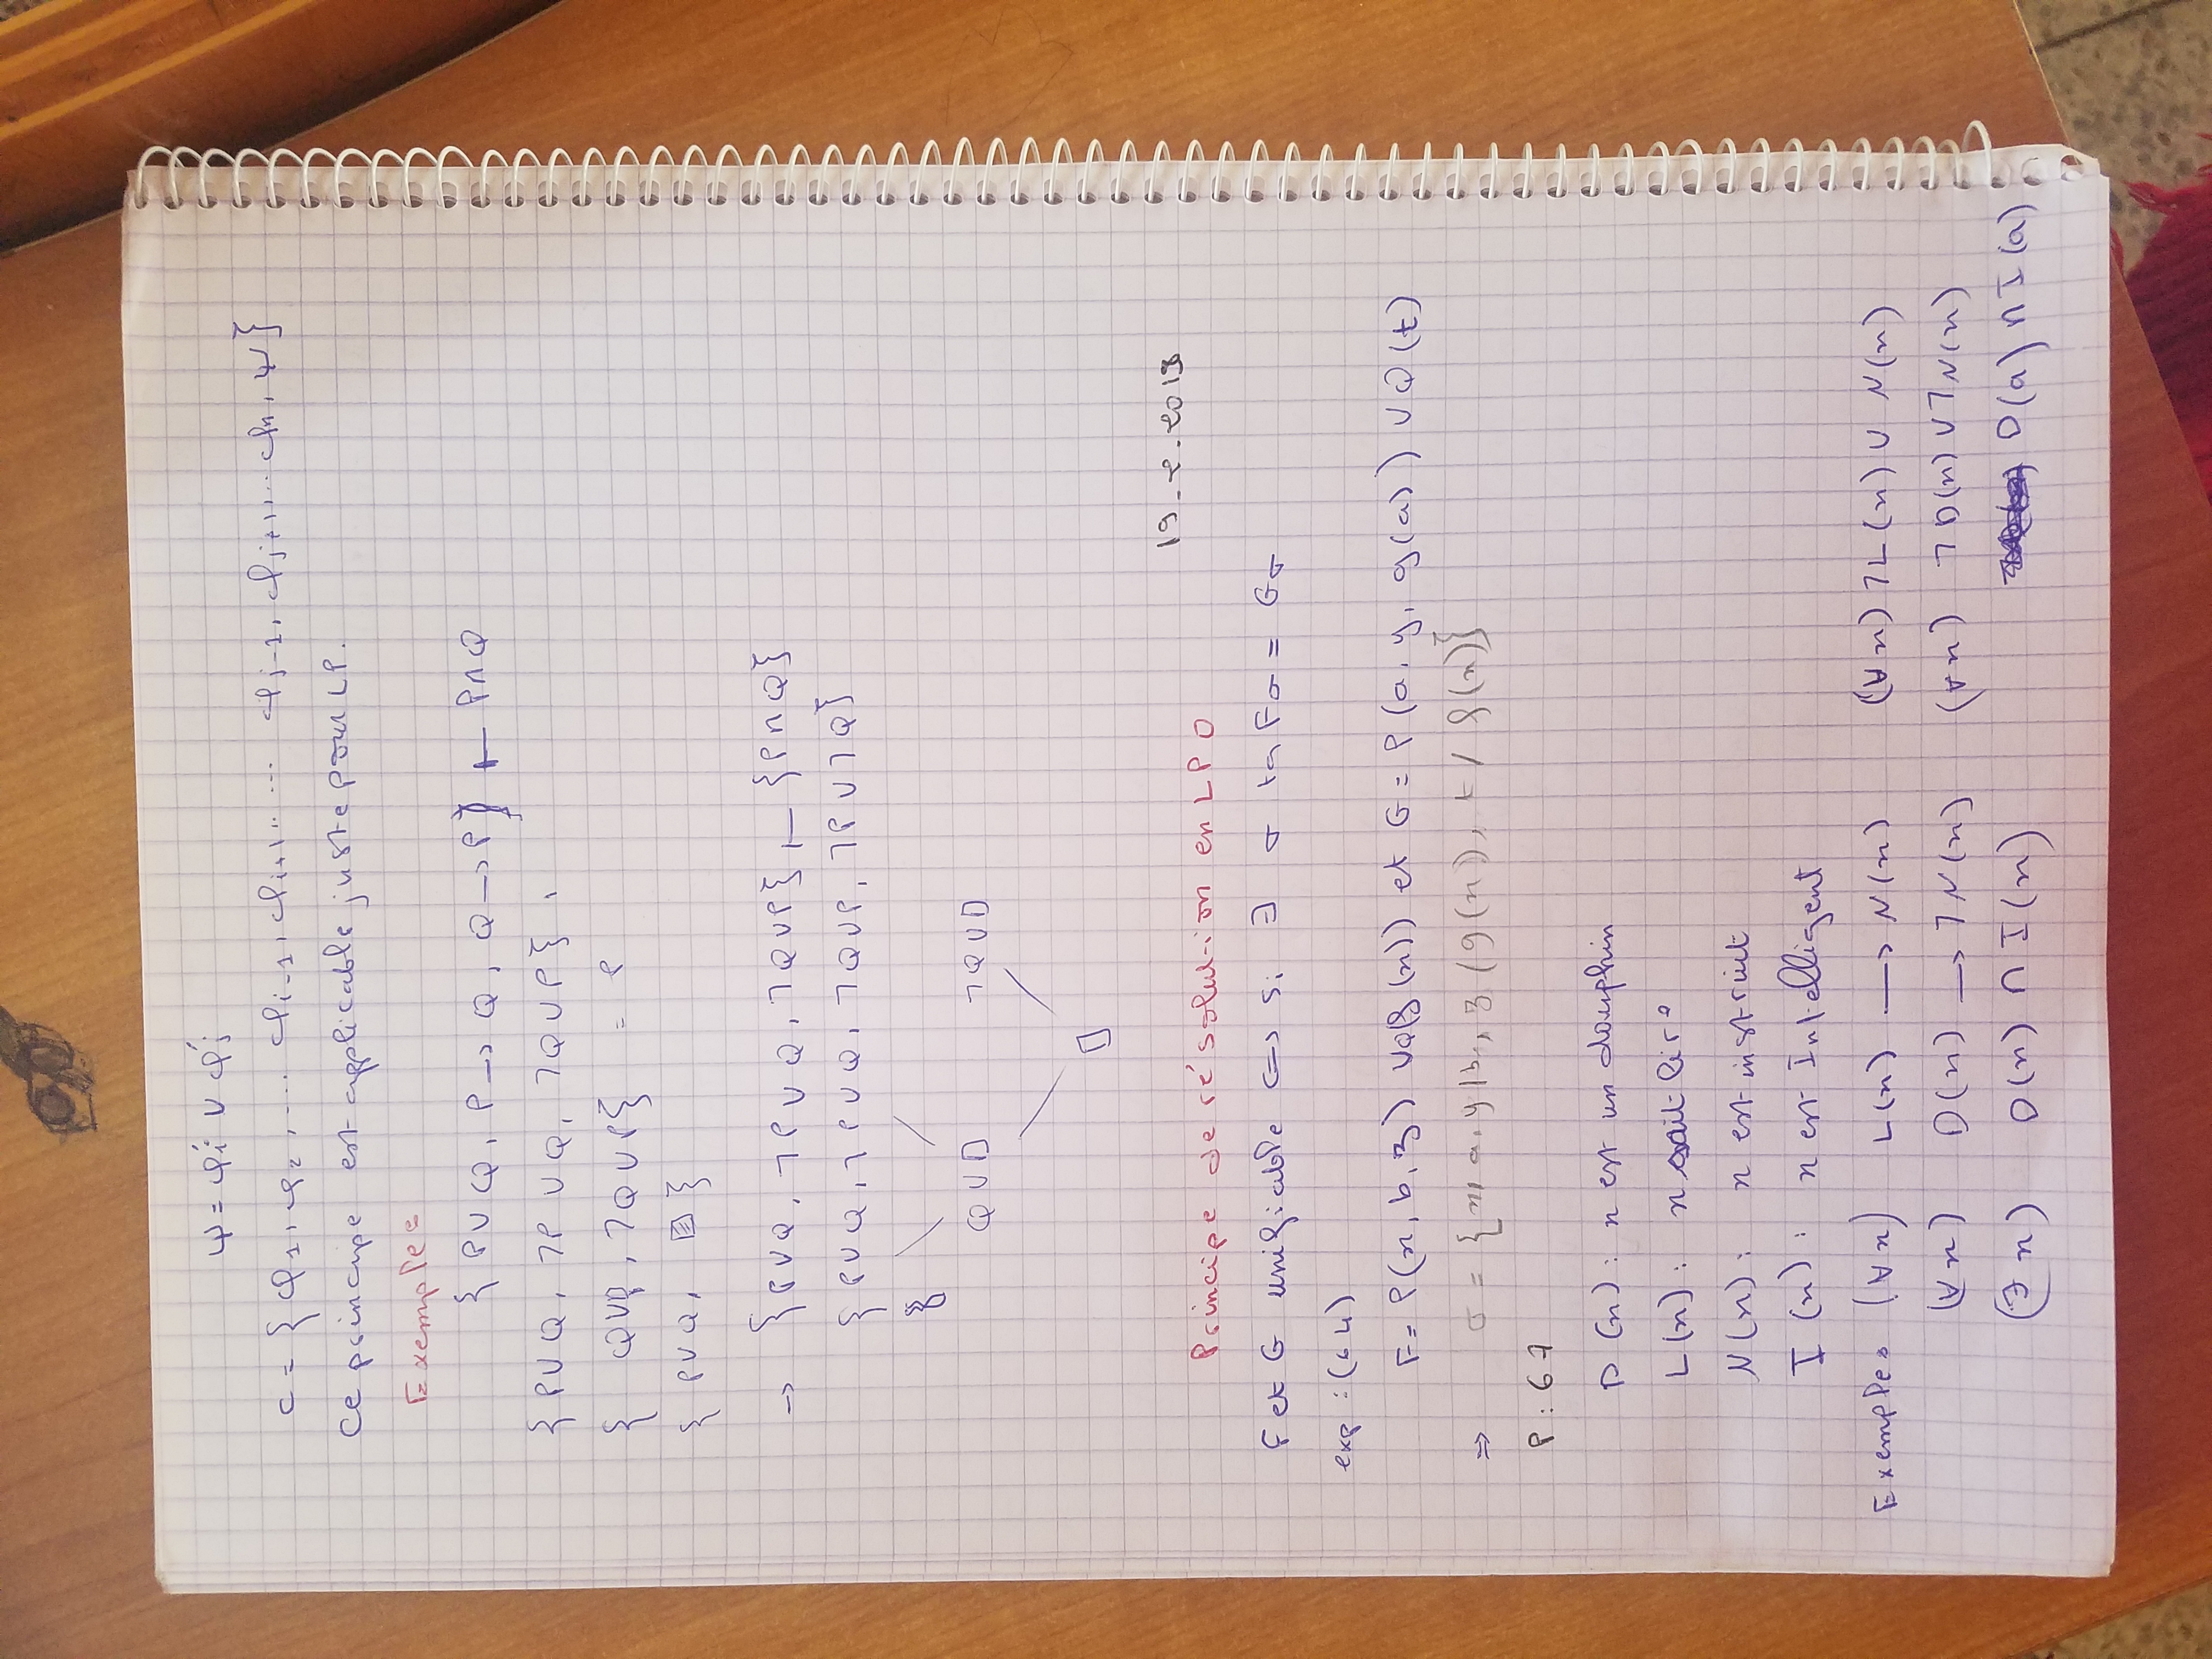 ψ = φ'i ∨ φ'j
C = {φ1, φ2, .... φi-1, φi+1 ... .... φj-1, φj+1 ... φn, ψ}
Ce principe est applicable juste pour LP.
Exemple
{P∨Q, P→Q, Q→P} ⊢ P∧Q
{P∨Q, ¬P∨Q, ¬Q∨P},
{Q∨Q, ¬Q∨P} = P
{P∨Q,
→ {P∨Q, ¬P∨Q, ¬Q∨P} ⊢ {P∧Q}
{P∨Q, ¬P∨Q, ¬Q∨P, ¬P∨¬Q}
Q∨□ ¬Q∨□
□
19-2-2013
Principe de résolution en LPO
F et G unifiable ⟺ si ∃ σ tq Fσ = Gσ
exp : (64)
F = P(x, b, z) ∨ Q(f(x)) et G = P(a, y, g(a)) ∨ Q(t)
⇒ σ = {x/a, y/b, z/(g(x)), t/f(x)}
P : 67
D(x) : x est un dauphin
L(x) : x sait lire
N(x) : x est instruit
I(x) : x est Intelligent
Exemple (∀x) L(x) → N(x) (∀x) ¬L(x) ∨ N(x)
(∀x) D(x) → ¬N(x) (∀x) ¬D(x) ∨ ¬N(x)
(∃x) D(x) ∩ I(x) D(a) ∩ I(a)